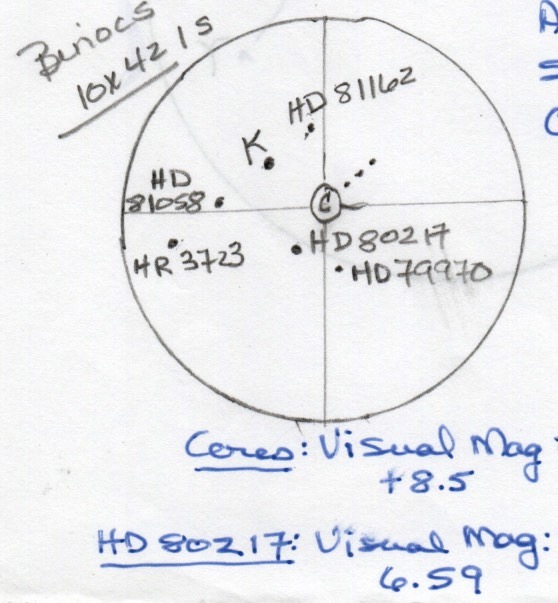 Binocs
10x42 IS
HD 81162
K
HD
81058
C
HR 3723
HD 80217
HD 79970
Ceres: Visual Mag
+8.5
HD 80217: Visual Mag:
6.59